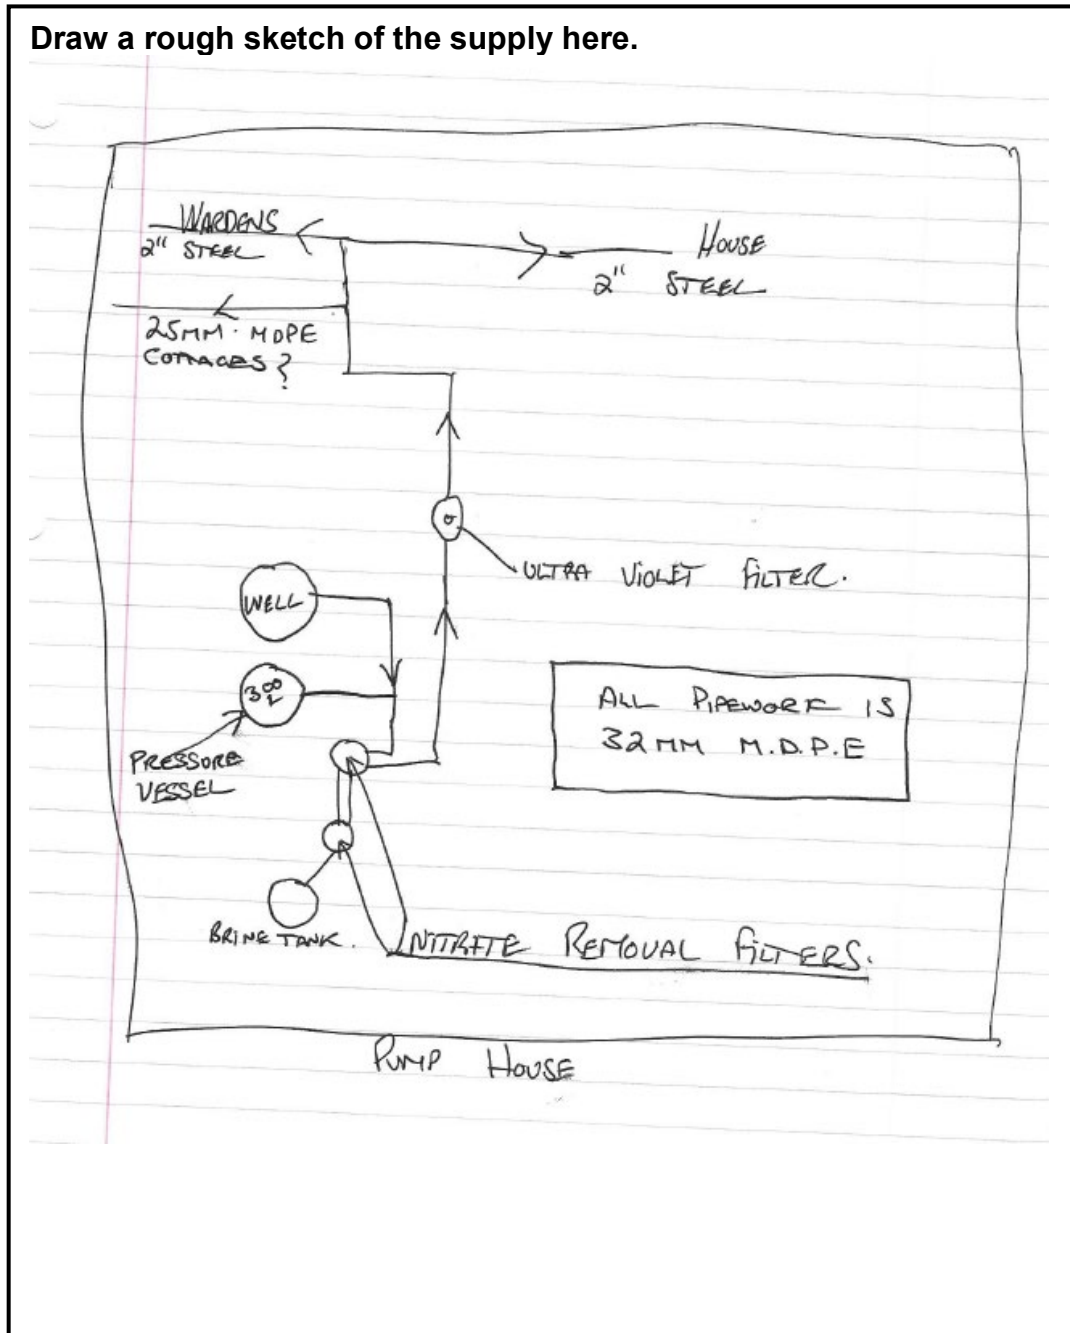 Draw a rough sketch of the supply here.
WARDENS
2" STEEL
HOUSE
2" STEEL
25MM. MDPE
COTTAGES?
ULTRA VIOLET FILTER.
WELL
300
L
PRESSORE
VESSEL
ALL PIPEWORK IS
32MM M.D.P.E
BRINE TANK.
NITRATE REMOVAL FILTERS.
PUMP HOUSE